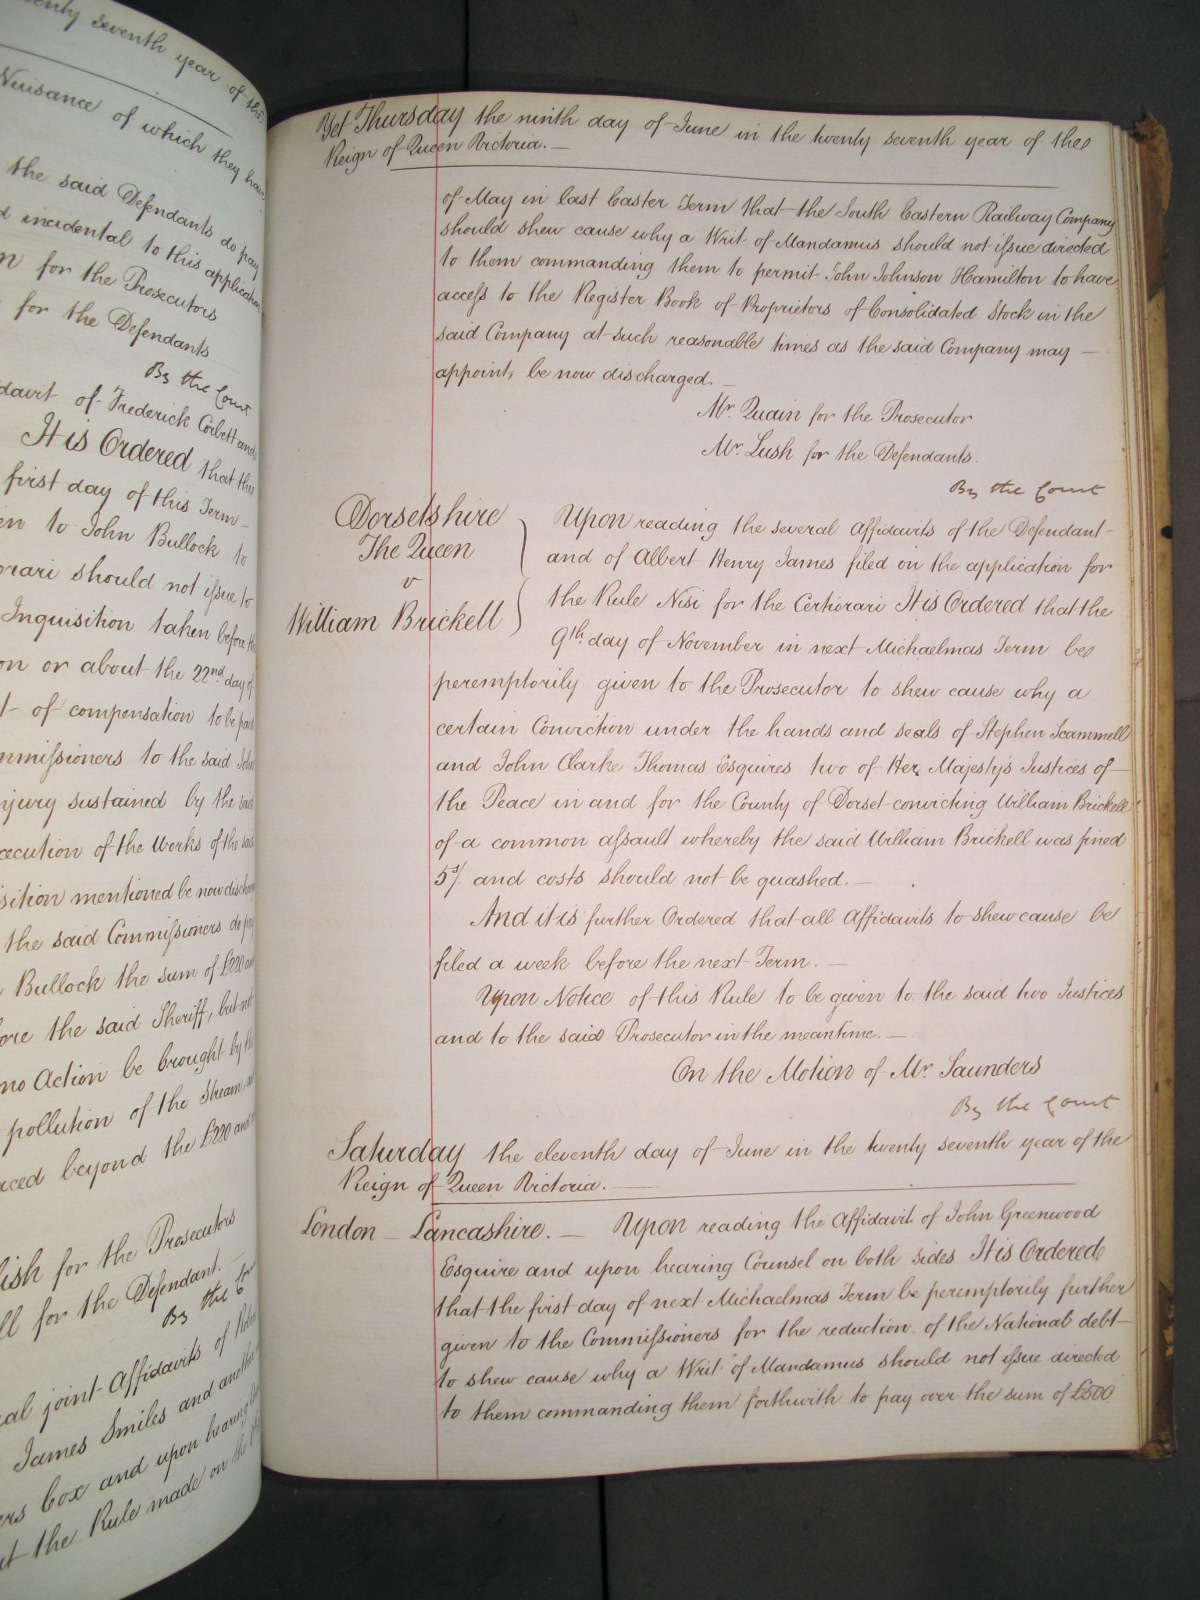 enty seventh year of the
Nuisance of which they have
the said Defendants do pay
d incidental to this application
n for the Prosecutors
for the Defendants
By the Court
davit of Frederick Corbett and
It is Ordered that the
first day of this Term
en to John Bullock to
orari should not issue to
Inquisition taken before the
on or about the 22nd day of
t of compensation to be paid
mmissioners to the said John
njury sustained by the said
xecution of the Works of the said
isition mentioned be now discharged
the said Commissioners do pay
Bullock the sum of £220 and
ore the said Sheriff, but not
no Action be brought by the
pollution of the Stream
uced beyond the £220 and
lish for the Prosecutors
ll for the Defendant.
By the Cour
ral joint Affidavits of
James Smiles and another
ers Cox and upon hearing
at the Rule made on the
Yet Thursday the ninth day of June in the twenty seventh year of the
Reign of Queen Victoria. —
of May in last Easter Term that the South Eastern Railway Company
should shew cause why a Writ of Mandamus should not issue directed
to them commanding them to permit John Johnson Hamilton to have
access to the Register Book of Proprietors of Consolidated Stock in the
said Company at such reasonable times as the said Company may —
appoint, be now discharged. —
Mr. Quain for the Prosecutor
Mr. Lush for the Defendants.
By the Court
Dorsetshire
The Queen
v
William Brickell
Upon reading the several Affidavits of the Defendant
and of Albert Henry James filed on the application for
the Rule Nisi for the Certiorari It is Ordered that the
9th day of November in next Michaelmas Term be
peremptorily given to the Prosecutor to shew cause why a
certain Conviction under the hands and seals of Stephen Scammell
and John Clarke Thomas Esquires two of Her Majesty's Justices of
the Peace in and for the County of Dorset convicting William Brickell
of a common assault whereby the said William Brickell was fined
5s/. and costs should not be quashed. —
And it is further Ordered that all Affidavits to shew cause be
filed a week before the next Term. —
Upon Notice of this Rule to be given to the said two Justices
and to the said Prosecutor in the meantime. —
On the Motion of Mr. Saunders
By the Court
Saturday the eleventh day of June in the twenty seventh year of the
Reign of Queen Victoria. —
London — Lancashire. — Upon reading the Affidavit of John Greenwood
Esquire and upon hearing Counsel on both sides It is Ordered
that the first day of next Michaelmas Term be peremptorily further
given to the Commissioners for the reduction of the National debt
to shew cause why a Writ of Mandamus should not issue directed
to them commanding them forthwith to pay over the sum of £500